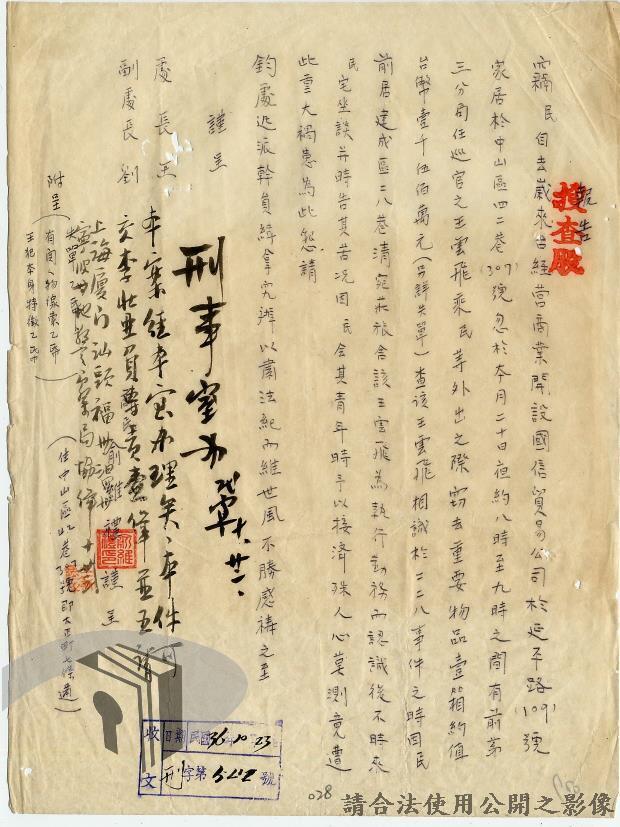 報告
搜查股
竊民自去歲來台經營商業開設國信貿易公司於延平路(109)號
家居於中山區四二巷(307)號忽於本月二十日夜約八時至九時之間有前第
三分局任巡官之王雲飛乘民等外出之際竊去重要物品壹箱約值
台幣壹千伍佰萬元(另詳失單)查該王雲飛相識於二二八事件之時因民
前居建成區二八巷清宛莊旅舍該王雲飛為執行勤務而認識後不時來
民宅坐談并時告其苦況因民念其青年時予以接濟殊人心莫測竟遭
此重大禍患為此懇請
鈞處迅派幹員緝拿究辦以肅法紀而維世風不勝感禱之至
謹呈
處長王
副處長劉
俞維禮謹呈
(住中山區四二巷307號即大正町七條通)
附呈
失單乙帋
王犯本身特徵乙帋
刑事室辦
本案經本室辦理矣本件可
上海廈門汕頭福州
收文
日期民國36.10.23
刑字第 號
028
請合法使用公開之影像